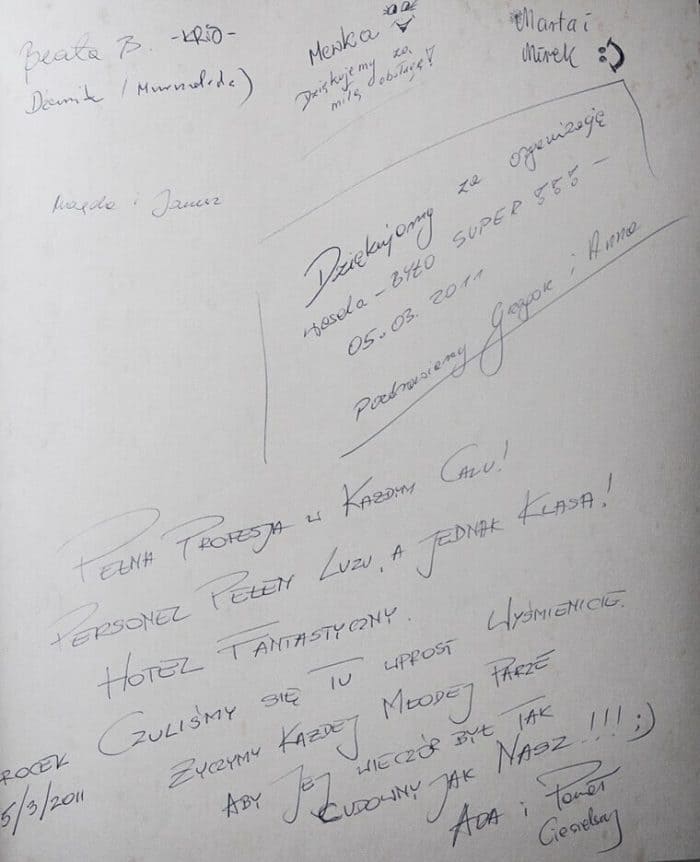 Beata B. -KRIO-
Mewka
Dziękujemy za
miłą obsługę!
Marta i
Mirek :)
Magda i Janusz
Dziękujemy za organizację
wesela - BYŁO SUPER
05.03.2011
Pozdrawiamy Grzegorz i Anna
PEŁNA PROFESJA W KAŻDYM CALU!
PERSONEL PEŁEN LUZU, A JEDNAK KLASA!
HOTEL FANTASTYCZNY.
CZULIŚMY SIĘ TU WPROST WYŚMIENICIE.
ŻYCZYMY KAŻDEJ MŁODEJ PARZE
ABY JEJ WIECZÓR BYŁ TAK
CUDOWNY JAK NASZ!!! ;)
ROCEK
5/3/2011
ADA i Paweł